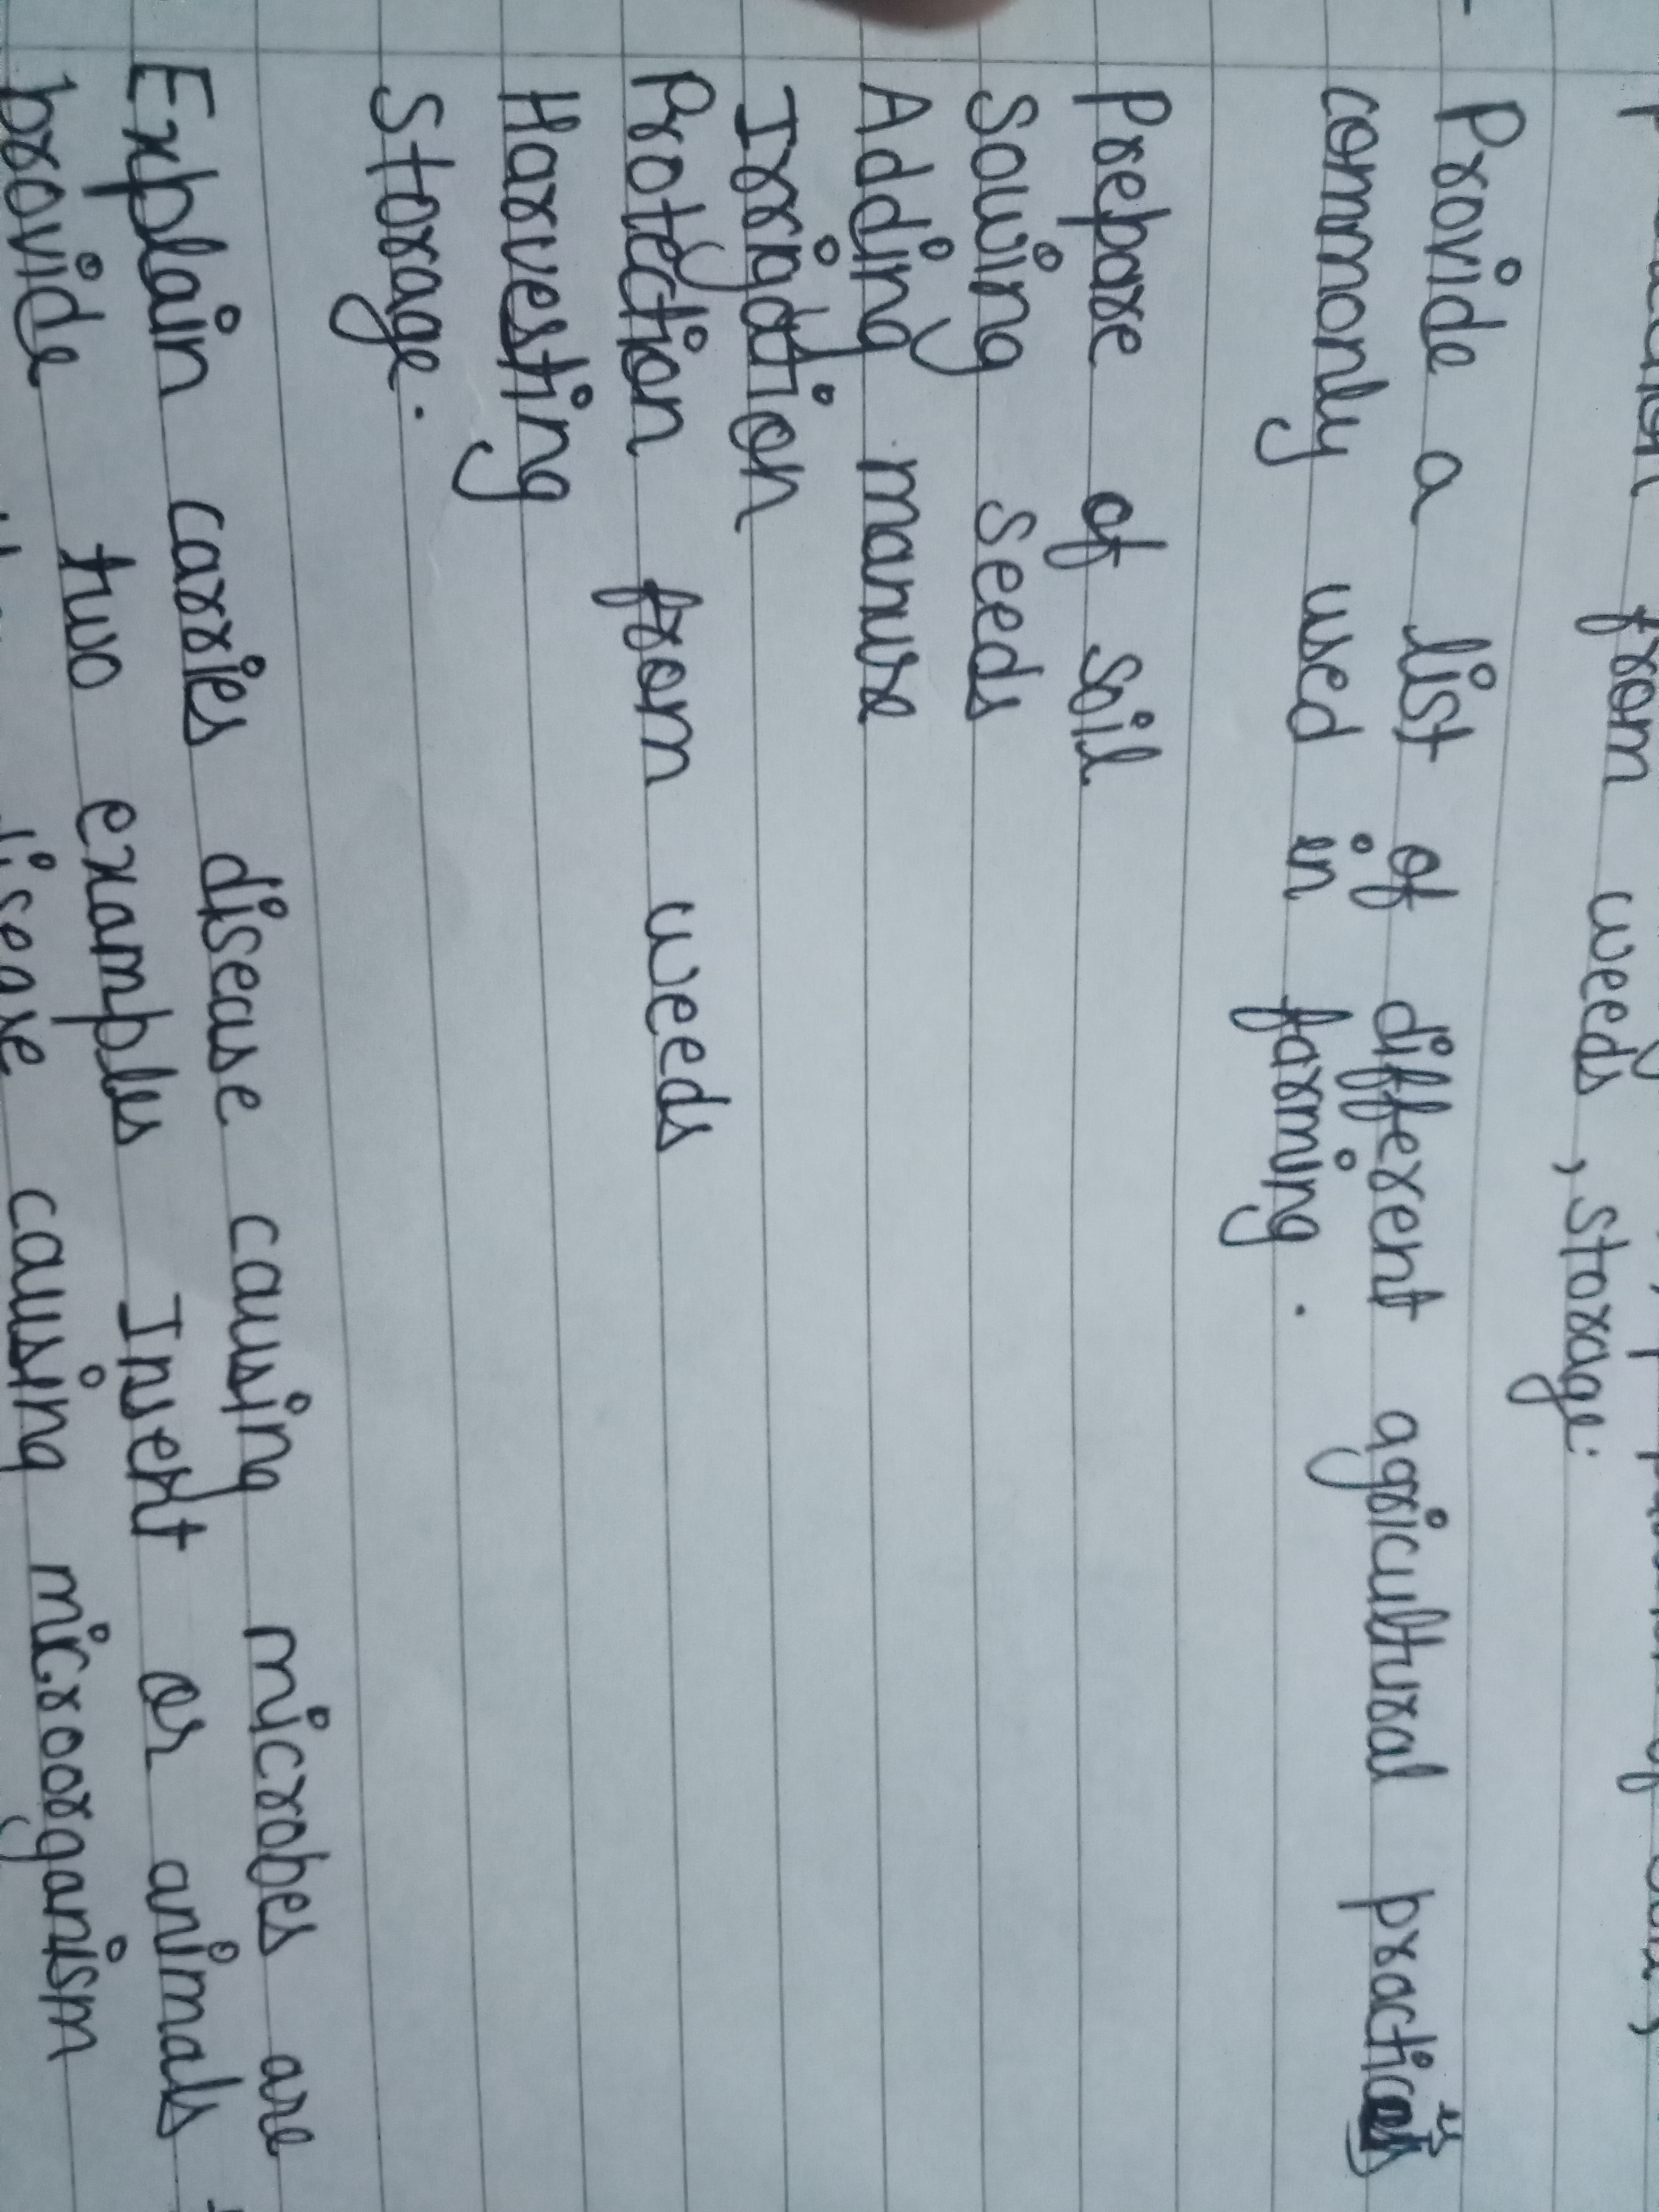 from weeds, Storage.
Provide a list of different agricultural practices
commonly used in farming.
Prepare of soil
Sowing seeds
Adding manure
Irrigation
Protection from weeds
Harvesting
Storage.
Explain carries disease causing microbes are
provide two examples Insent or animals
disease causing microorganism